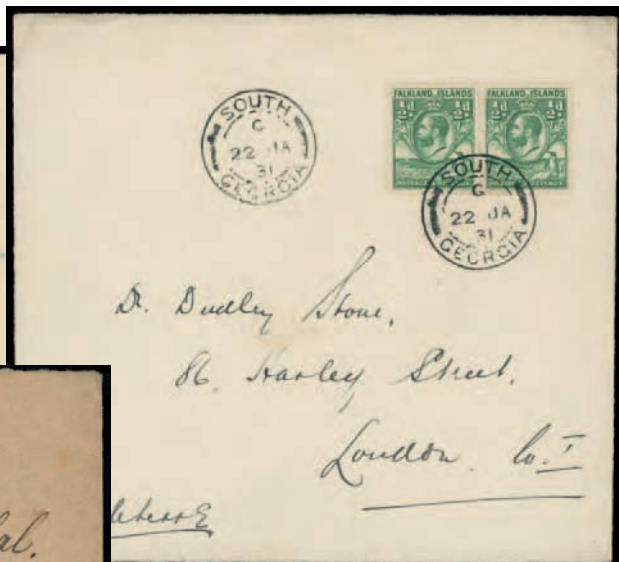 SOUTH
C
22 JA
31
GEORGIA
FALKLAND ISLANDS
½d ½d
FALKLAND ISLANDS
½d ½d
SOUTH
G
22 JA
31
GEORGIA
Dr. Dudley Stone,
86. Harley Street.
London. W.I
al.